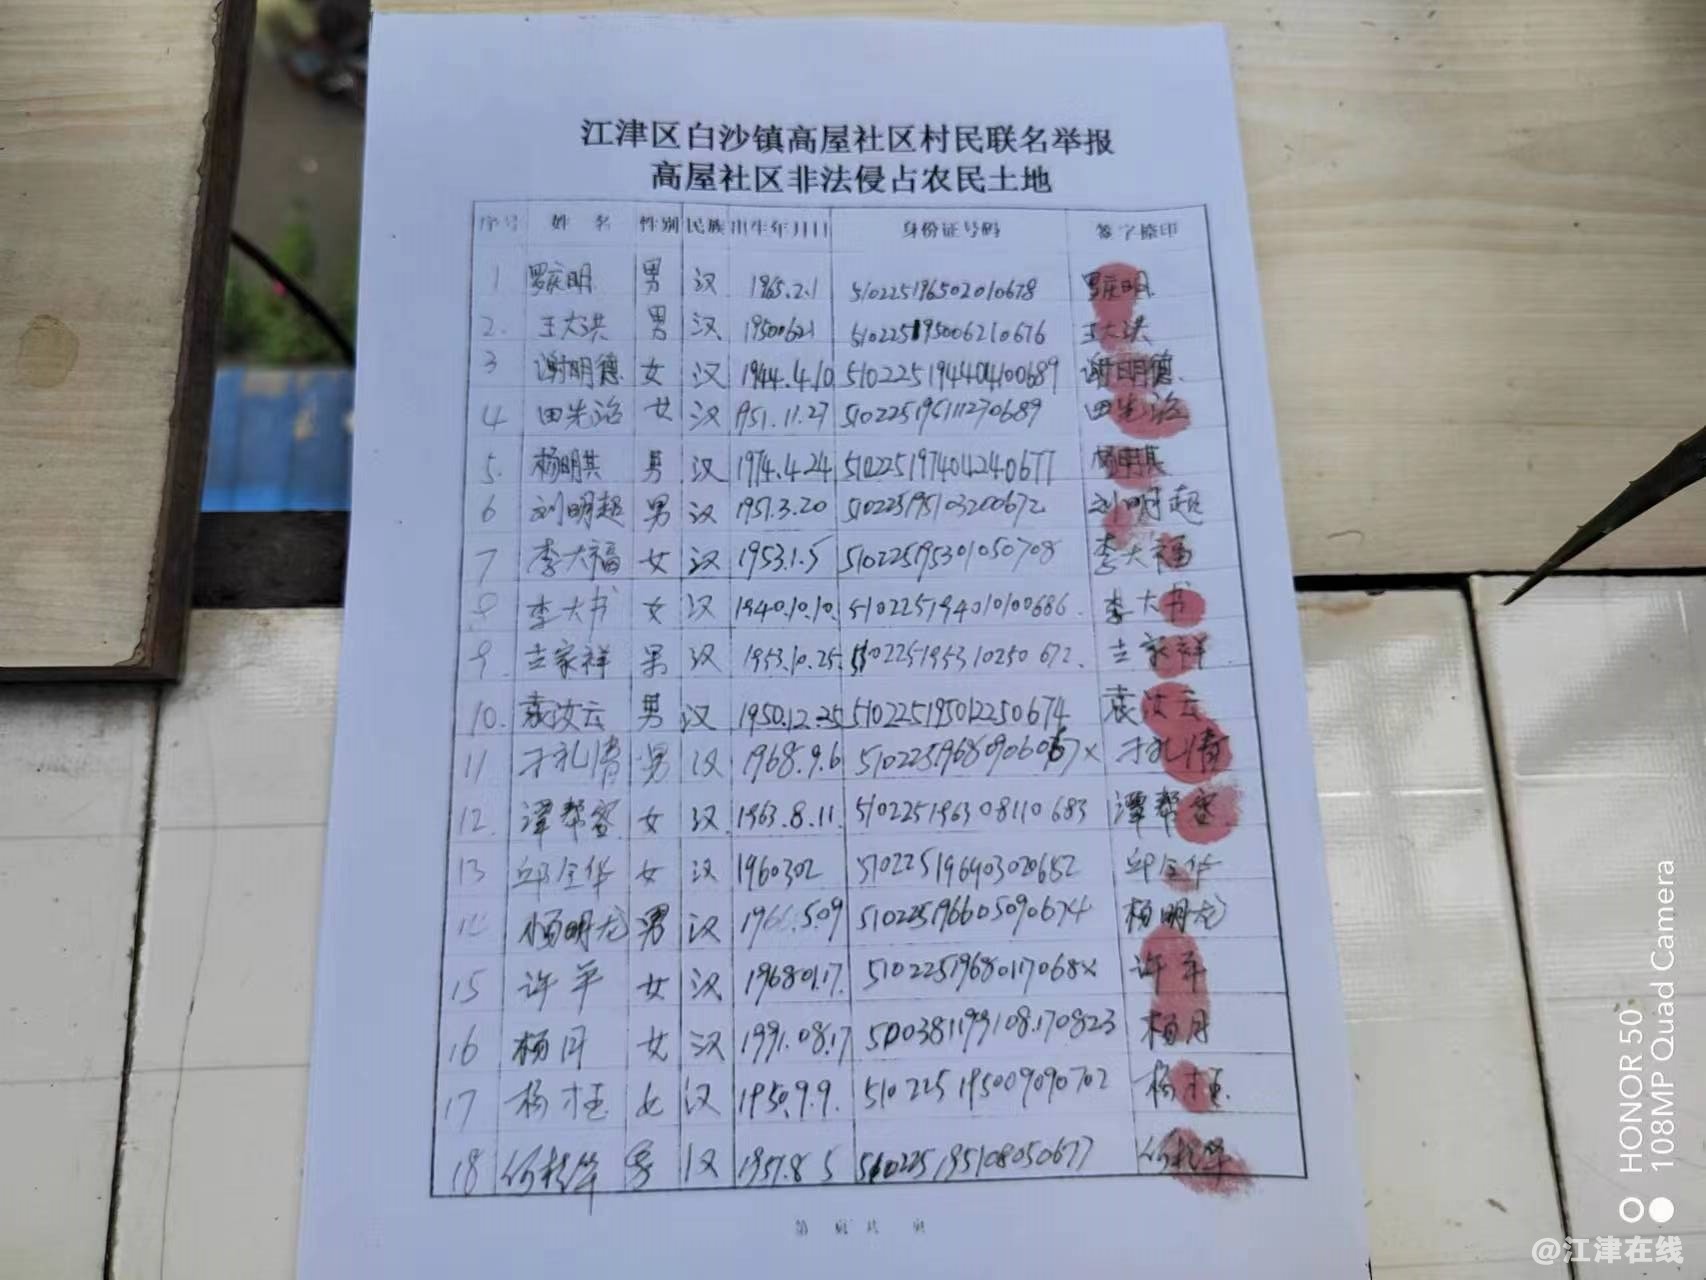 江津区白沙镇高屋社区村民联名举报
高屋社区非法侵占农民土地
序号 姓名 性别 民族 出生年月日 身份证号码 签字捺印
1 罗庆明 男 汉 1965.2.1 510225196502010678 罗庆明
2. 王大洪 男 汉 19500621 510225195006210676 王大洪
3 谢明德 女 汉 1944.4.10 510225194404100689 谢明德
4 田先治 女 汉 1951.11.27 510225195111270689 田先治
5. 杨明其 男 汉 1974.4.24 510225197404240677 杨明其
6 刘明超 男 汉 1951.3.20 510225195103200672 刘明超
7 李大福 女 汉 1953.1.5 510225195301050708 李大福
8 李大书 女 汉 1940.10.10. 510225194010100686. 李大书
9. 家祥 男 汉 1953.10.25. 510225195310250672. 家祥
10. 袁汝云 男 汉 1950.12.25 510225195012250674 袁汝云
11 礼清 男 汉 1968.9.6 51022519680906067X 礼清
12. 谭帮容 女 汉 1963.8.11. 510225196308110683 谭帮容
13 邱全华 女 汉 1960302 510225196403020682 邱全华
14 杨明龙 男 汉 510225196605090674 杨明龙
15 许平 女 汉 19680117. 51022519680117068X 许平
16 杨月 女 汉 1991.08.17 500381199108170823 杨月
17 杨 女 汉 1950.9.9. 510225195009090702 杨
18 何 男 汉 1951.8 5 510225195108050677 何
第 页 共 页
HONOR 50
108MP Quad Camera
@江津在线